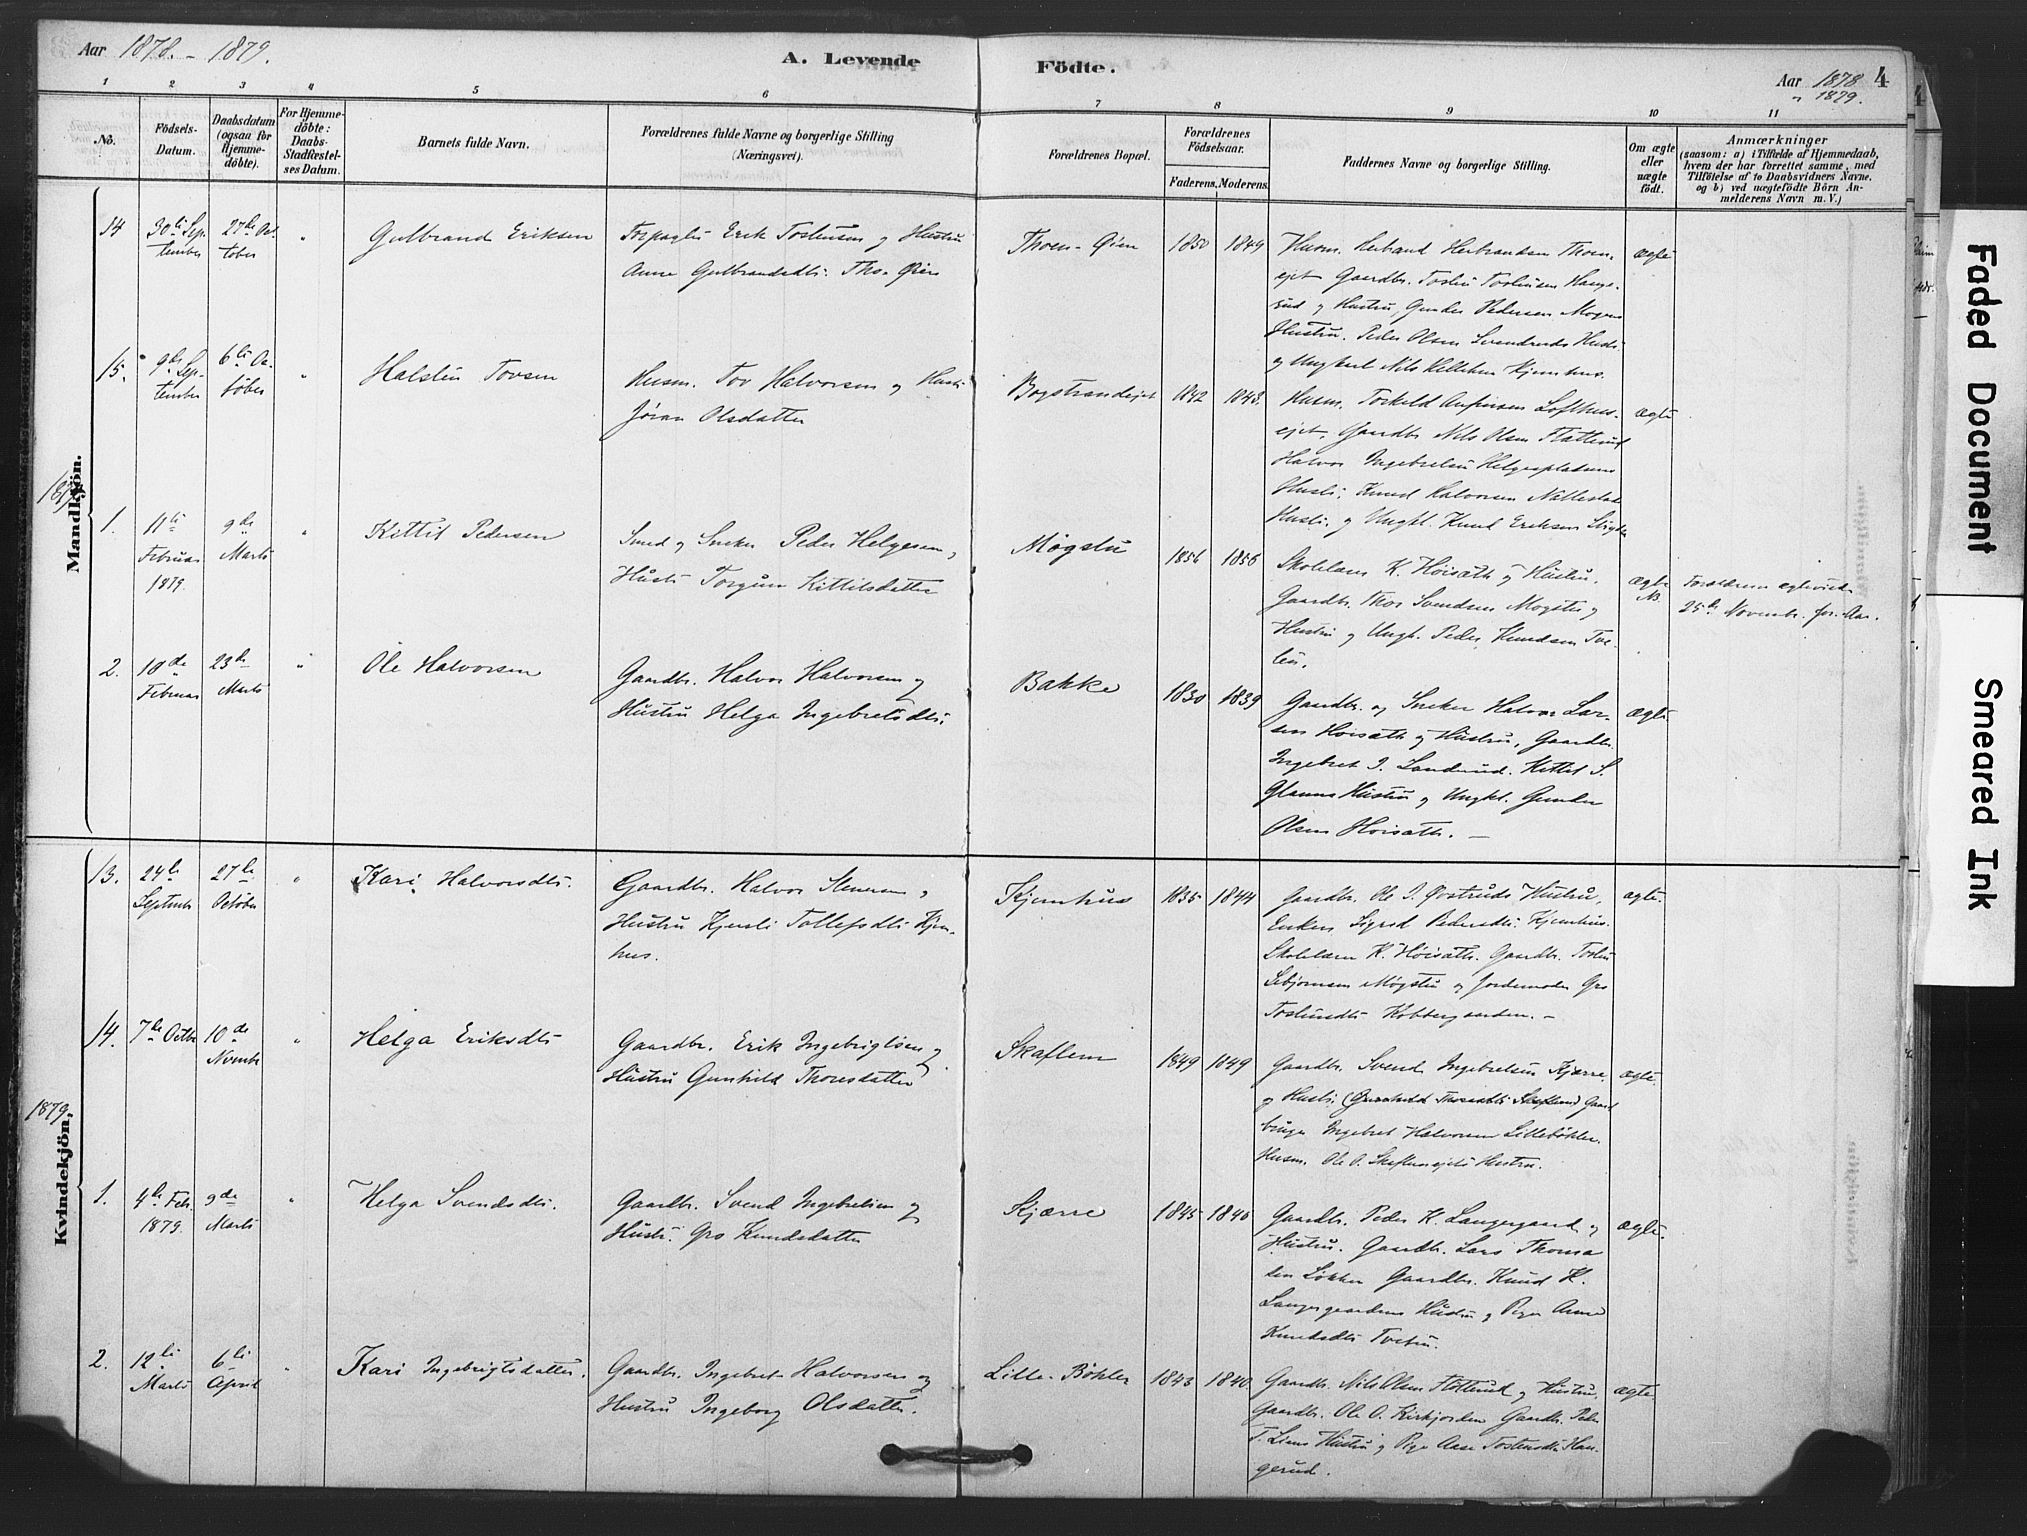 Aar 1878 - 1879.
A. Levende
Födte.
Aar 1878
" 1879.
4
1 2 3 4 5 6 7 8 9 10 11
No.
Födsels-
Datum.
Daabsdatum
(ogsaa for
Hjemme-
döbte).
For Hjemme-
döbte:
Daabs-
Stadfæstel-
ses Datum.
Barnets fulde Navn.
Forældrenes fulde Navne og borgerlige Stilling
(Næringsvei).
Forældrenes Bopæl.
Forældrenes
Födselsaar.
Faderens. Moderens.
Faddernes Navne og borgerlige Stilling.
Om ægte
eller
uægte
födt.
Anmærkninger
(saasom: a) i Tilfælde af Hjemmedaab,
hvem der har forrettet samme, med
Tilföielse af to Daabsvidners Navne,
og b) ved uægtefödte Börn An-
melderens Navn m. V.)
Mandkjön.
14
30te Sep-
tember
27de Oc-
tober
"
Gulbrand Eriksen
Erik Tostensen og Hustru
Anne Gulbrandsdtr.
Thoen-Øien
1850
1849
Husm. Herbrand Herbrandsen Thoen-
ejet Gaardbr. Tosten Tostensen Hauge-
rud og Hustru, Gunder Pedersen Mogens
Hustru. Peder Olsen
og Ungkarl Nils Kjemhus.
ægte
15.
9de Sep-
tember
6te Oc-
tober
"
Halsten Tovsen
Husm. Tov Halvorsen og Hustr.
Jøran Olsdatter
Bogstrandejet
1842
1843.
Husm. Torkild Lofthus-
ejet, Gaardbr Nils Olsen Flatterud
Halvor Ingebretsen Helgespladsens
Hustr. Knud Halvorsen
Hustr. og Ungk. Knud Eriksen
ægte
1879
1.
11te
Februar
1879.
9de
Marts
"
Kittil Pedersen
Smed og Sneker Peder Helgesen,
Hustr. Torgun Kittilsdatter
Møgstu
1856
1856
Skolelærer K. Høisæth og Hustru.
Gaardbr. Thor Svendsen Mogstu og
Hustru og Ungk. Peder Knudsen Tve-
ten.
ægte
NB.
Forældrene ægteviede
25de Novembr. for. Aar.
2.
18de
Februar
23de
Marts
"
Ole Halvorsen
Gaardbr. Halvor Halvorsen og
Hustru Helga Ingebretsdtr.
Bakke
1830
1839
Gaardbr. og Sneker Halvor Lar-
sen Hoisæth og Hustru, Gaardbr.
Ingebret J. Landsrud. Kittil S.
Hustru og Ungkl. Gunder
Olsen Hoisæth. -
ægte
1879.
Kvindekjön.
13.
24de
Septembr
27de
October
"
Kari Halvorsdtr.
Gaardbr. Halvor Stenersen,
Hustru Kjersti Tollefsdtr. Kjem-
hus.
Kjemhus
1835
1844
Gaardbr. Ole J. Østruds Hustru,
Enken Sigrid Pedersdtr. Kjemhus.
Skolelærer K. Høisæth. Gaardbr. Tosten
Møgstu og Jordemoder Gro
Tostensdtr. Kobbergaarden. -
ægte.
14.
7de Octbr
10de
Novembr
"
Helga Eriksdtr.
Gaardbr. Erik Ingebrigtsen og
Hustru Gunhild Thoresdatter
Skaflem
1849
1849
Gaardbr. Svend Ingebretsen Kjærre
og Hustr. (Gunhild Thoresdtr. Skaflem) Gaard
bruger Ingebret Halvorsen Lillebøhler.
Husm. Ole O. Skaflemsejets Hustru.
ægte.
1.
4de Feb.
1879.
9de
Marts
"
Helga Svendsdtr.
Gaardbr. Svend Ingebretsen og
Hustr. Gro Knudsdatter
Kjærre
1845
1846
Gaardbr. Peder K. Langergaard og
Hustru. Gaardbr. Lars Thoma
sen Løkken Gaardbr. Knud K.
Langergaardens Hustru og Pige Anne
Knudsdtr. Tveten.
ægte.
2.
12te
Marts
6te
April
"
Kari Ingebrigtsdatter.
Gaardbr. Ingebret Halvorsen og
Hustru Ingeborg Olsdatter.
Lille-Bøhler
1843
1840
Gaardbr. Nils Olsen Flatterud og Hustru,
Gaardbr. Ole O. Kirkjorden Gaardbr. Peder
T. Liens Hustru og Pige Aase Tostensdtr. Hau-
gerud.
ægte
Faded Document
Smeared Ink